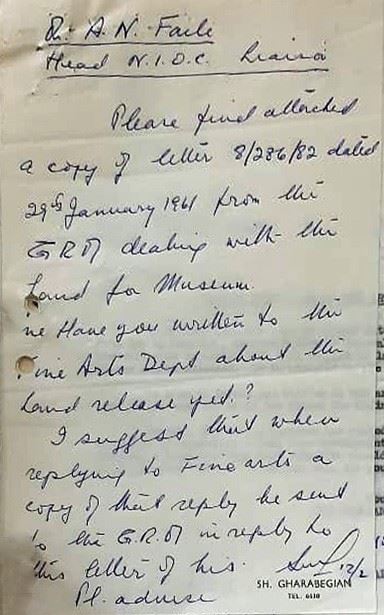 Dr. A. N. Faile
Head N.I.O.C. Liaison
Please find attached
a copy of letter 8/286/82 dated
29th January 1961 from the
G.R.O dealing with the
Land for Museum.
Have you written to the
Fine Arts Dept about the
Land release yet?
I suggest that when
replying to Fine arts a
copy of that reply be sent
to the G.R.O in reply to
this letter of his.
12/2
SH. GHARABEGIAN
TEL. 6510
Pl. advise